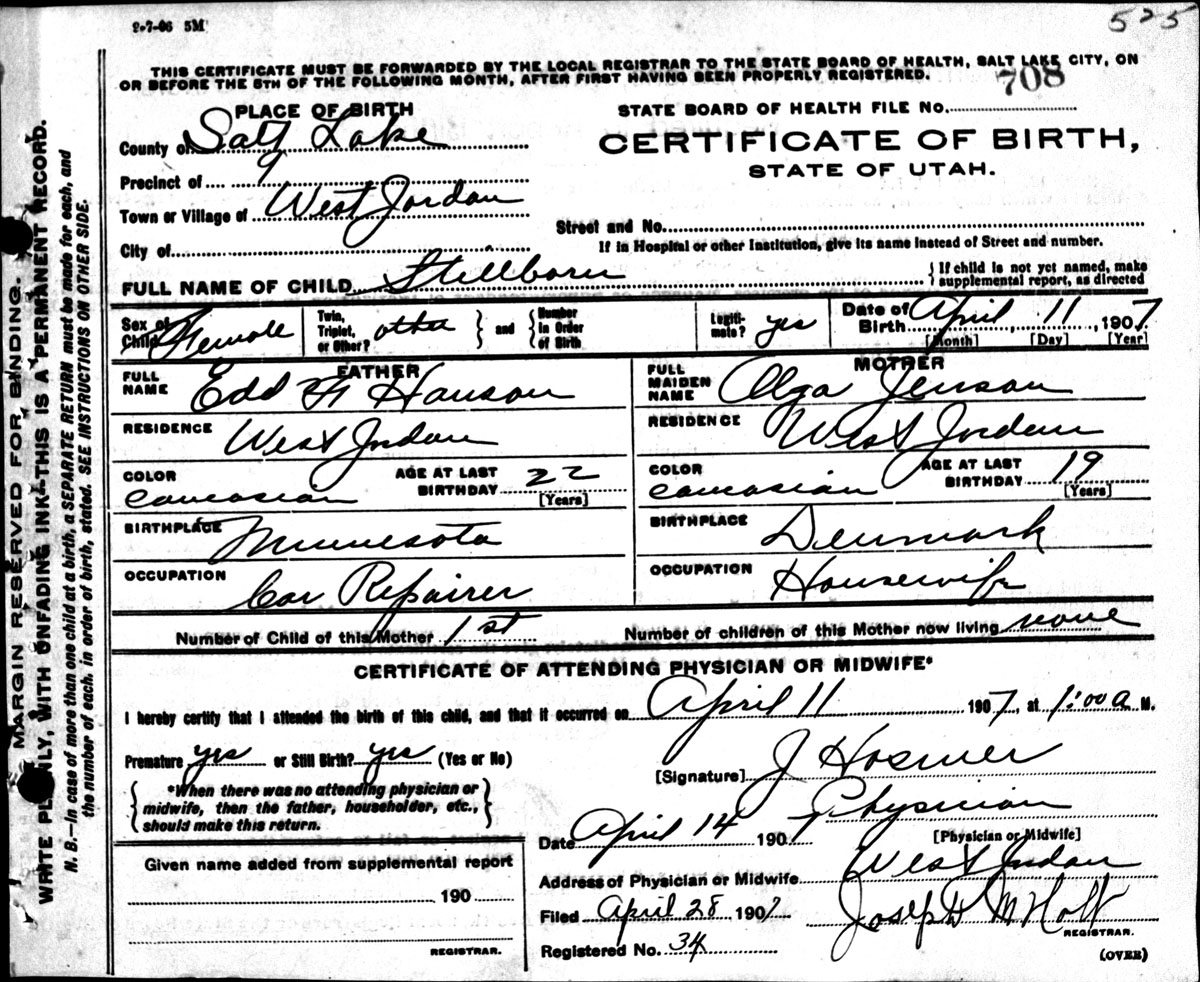 2-7-06 5M
525
THIS CERTIFICATE MUST BE FORWARDED BY THE LOCAL REGISTRAR TO THE STATE BOARD OF HEALTH, SALT LAKE CITY, ON
OR BEFORE THE 5TH OF THE FOLLOWING MONTH, AFTER FIRST HAVING BEEN PROPERLY REGISTERED.
708
PLACE OF BIRTH
STATE BOARD OF HEALTH FILE No.
County of Salt Lake
CERTIFICATE OF BIRTH,
STATE OF UTAH.
Precinct of
Town or Village of West Jordan
Street and No.
If in Hospital or other Institution, give its name instead of Street and number.
City of
FULL NAME OF CHILD Stillborn
{ If child is not yet named, make supplemental report, as directed
Sex of Child Female
Twin, Triplet, or Other? other } and { Number in Order of Birth
Legitimate? yes
Date of Birth April 11, 1907
[Month] [Day] [Year]
FATHER
FULL NAME Edd H Hanson
RESIDENCE West Jordan
COLOR caucasian
AGE AT LAST BIRTHDAY 22
[Years]
BIRTHPLACE Minnesota
OCCUPATION Car Repairer
MOTHER
FULL MAIDEN NAME Olga Jenson
RESIDENCE West Jordan
COLOR caucasian
AGE AT LAST BIRTHDAY 19
[Years]
BIRTHPLACE Denmark
OCCUPATION Housewife
Number of Child of this Mother 1st
Number of children of this Mother now living none
CERTIFICATE OF ATTENDING PHYSICIAN OR MIDWIFE*
I hereby certify that I attended the birth of this child, and that it occurred on April 11 1907, at 1:00 a M.
Premature yes or Still Birth? yes (Yes or No)
{ *When there was no attending physician or midwife, then the father, householder, etc., should make this return. }
[Signature] J Hosmer
Physician
[Physician or Midwife]
Date April 14 1907
Address of Physician or Midwife West Jordan
Filed April 28 1907
Joseph M Holt
REGISTRAR.
Registered No. 34
(OVER)
Given name added from supplemental report
190
REGISTRAR.
MARGIN RESERVED FOR BINDING.
WRITE PLAINLY, WITH UNFADING INK-THIS IS A PERMANENT RECORD.
N. B.—In case of more than one child at a birth, a SEPARATE RETURN must be made for each, and
the number of each, in order of birth, stated. SEE INSTRUCTIONS ON OTHER SIDE.